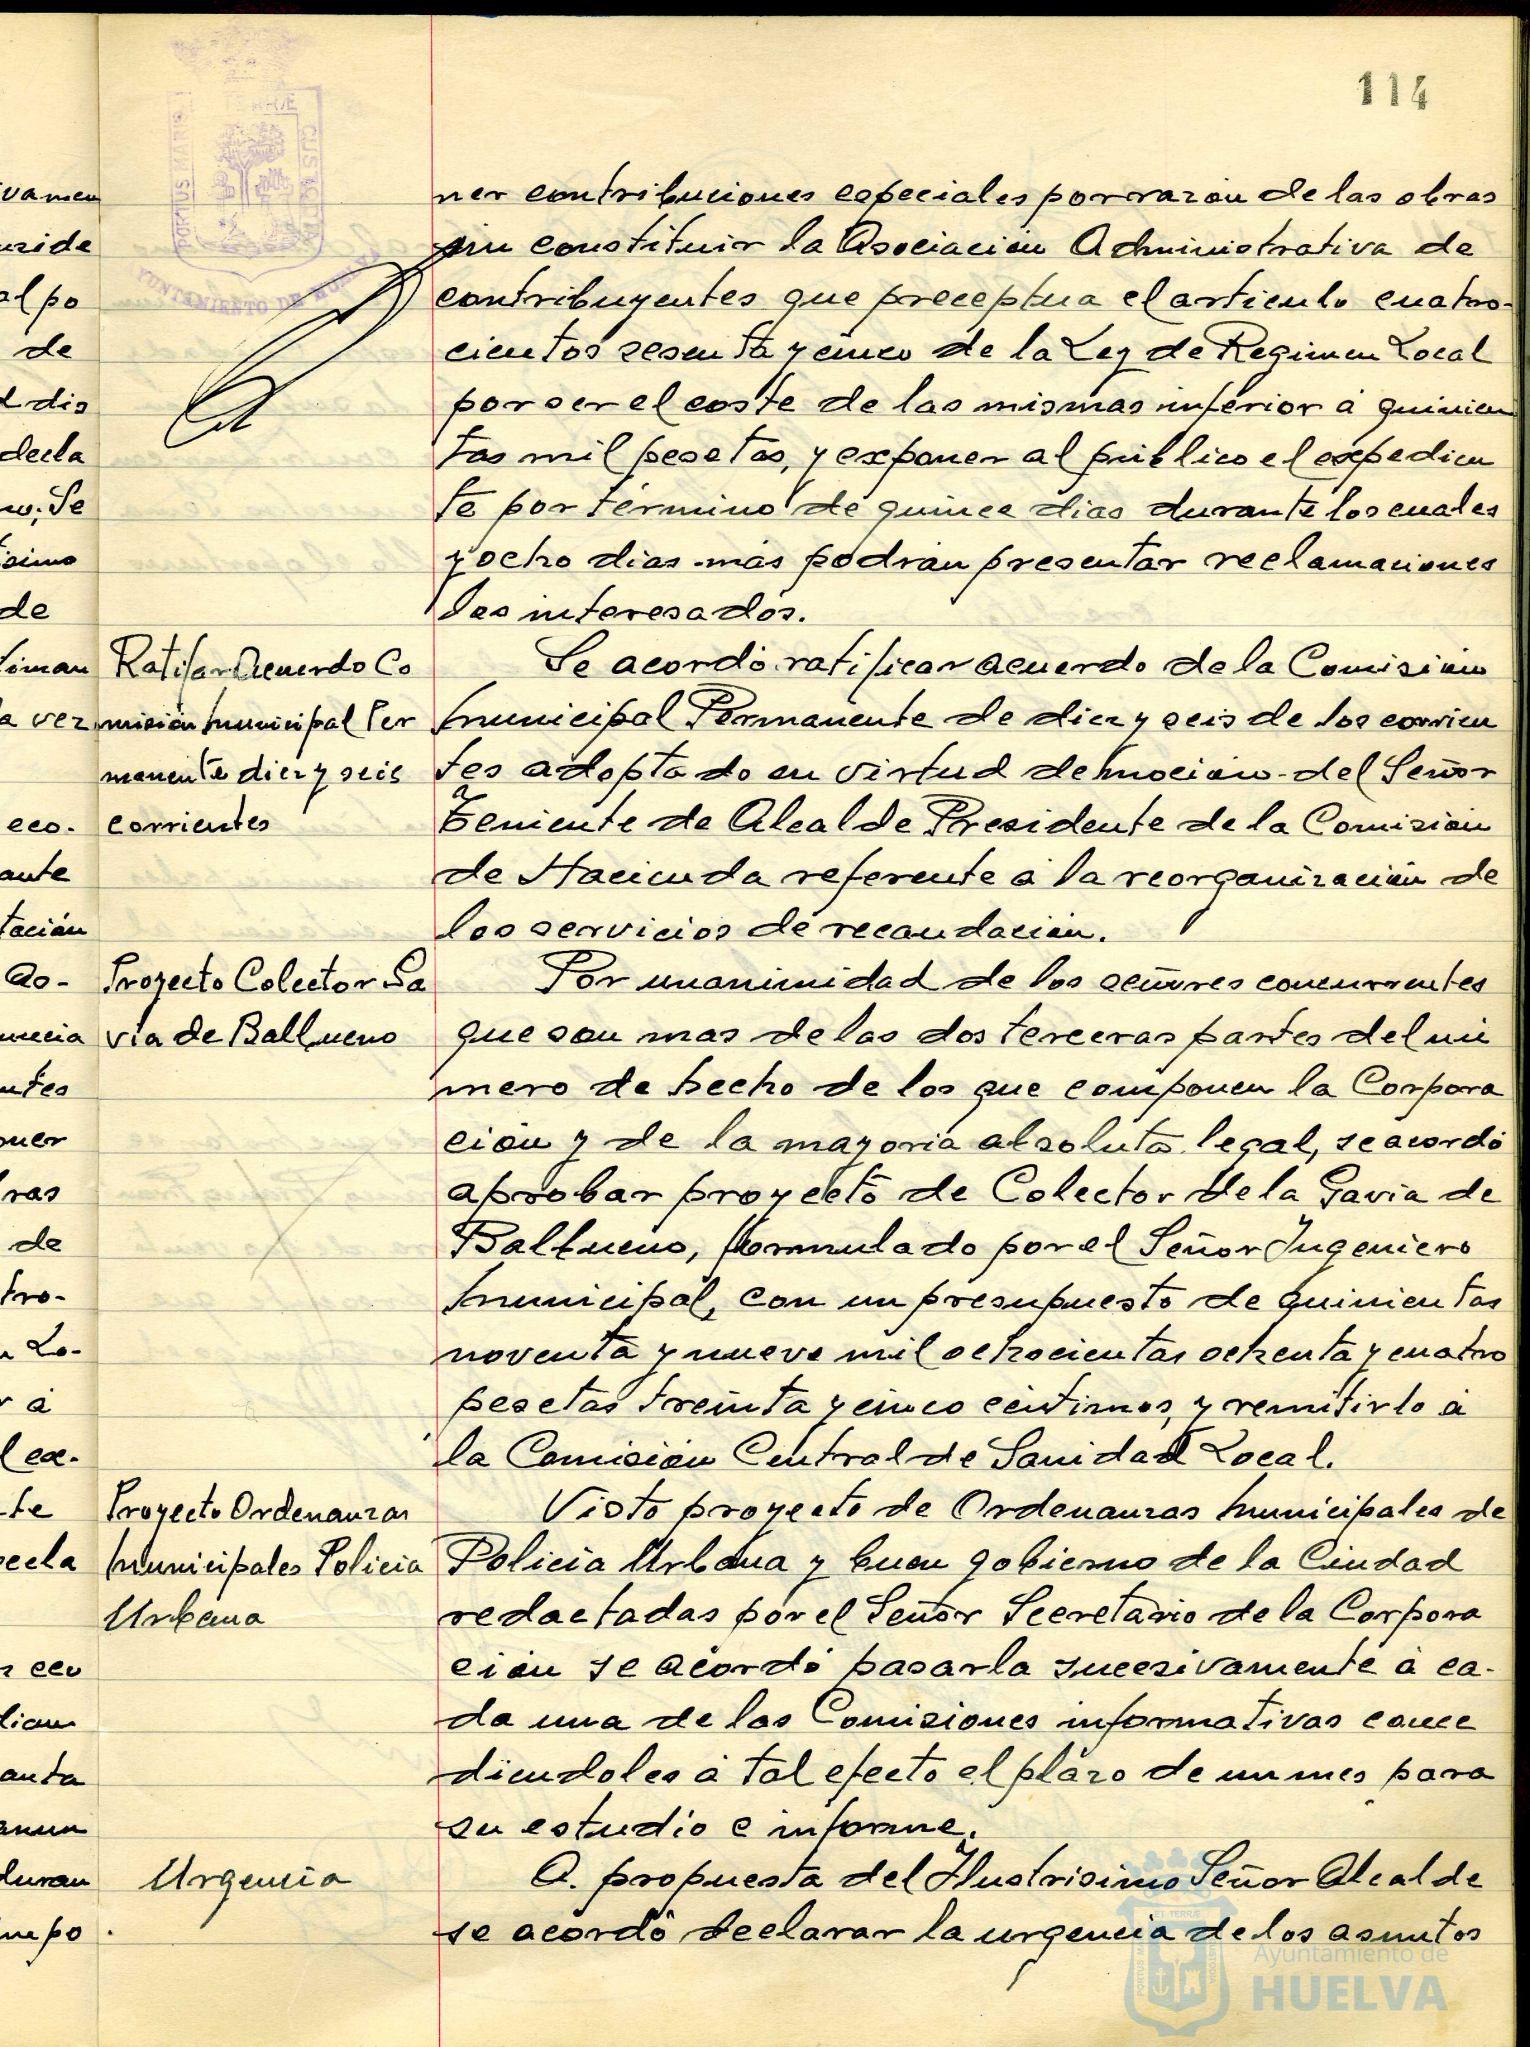 114
ner contribuciones especiales por razón de las obras
sin constituir la Asociación Administrativa de
contribuyentes que preceptua el articulo cuatro-
cientos sesenta y cinco de la Ley de Regimen Local
por ser el coste de las mismas inferior á quinien
tas mil pesetas, y exponer al público el expedien
te por término de quince dias durante los cuales
y ocho dias más podrán presentar reclamaciones
los interesados.
Ratifar Acuerdo Co
misión Municipal Per
manente diez y seis
corrientes
Se acordó ratificar acuerdo de la Comisión
Municipal Permanente de diez y seis de los corrien
tes adoptado en virtud de moción del Señor
Teniente de Alcalde Presidente de la Comisión
de Hacienda referente á la reorganización de
los servicios de recaudación.
Proyecto Colector Ga
via de Balbueno
Por unanimidad de los señores concurrentes
que son mas de las dos terceras partes del nú
mero de hecho de los que componen la Corpora
ción y de la mayoria absoluta legal, se acordó
aprobar proyecto de Colector de la Gavia de
Balbueno, formulado por el Señor Ingeniero
Municipal, con un presupuesto de quinientas
noventa y nueve mil ochocientas ochenta y cuatro
pesetas treinta y cinco céntimos, y remitirlo á
la Comisión Central de Sanidad Local.
Proyecto Ordenanzas
Municipales Policia
Urbana
Visto proyecto de Ordenanzas Municipales de
Policia Urbana y buen gobierno de la Ciudad
redactadas por el Señor Secretario de la Corpora
ción se acordó pasarla sucesivamente á ca-
da una de las Comisiones informativas conce
diendoles á tal efecto el plazo de un mes para
su estudio e informe.
Urgencia
A. propuesta del Ilustrisimo Señor Alcalde
se acordó declarar la urgencia de los asuntos
vamen
al po
de
dis
decla
Se
de
a vez
eco.
ante
tación
Ao-
ner
ras
de
tro-
Lo-
r á
l ex-
te
anta
duran
PORTUS MARIS
TERRÆ
CUSTODIA
AYUNTAMIENTO DE HUELVA
Ayuntamiento de
HUELVA